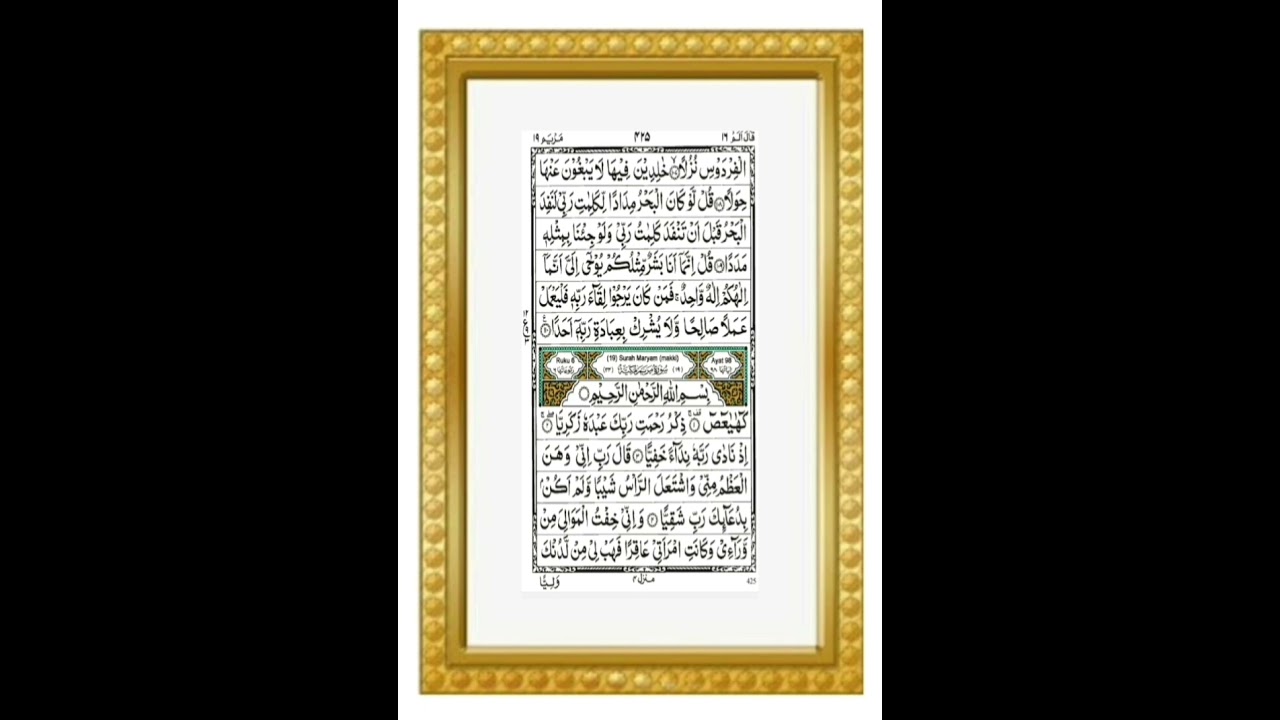 قال الم ١٦
٤٢٥
مريم ١٩
الْفِرْدَوْسِ نُزُلًا ۙ﴿١٠٧﴾ خٰلِدِيْنَ فِيْهَا لَا يَبْغُوْنَ عَنْهَا
حِوَلًا ﴿١٠٨﴾ قُلْ لَّوْ كَانَ الْبَحْرُ مِدَادًا لِّكَلِمٰتِ رَبِّيْ لَنَفِدَ
الْبَحْرُ قَبْلَ اَنْ تَنْفَدَ كَلِمٰتُ رَبِّيْ وَلَوْ جِئْنَا بِمِثْلِهٖ
مَدَدًا ﴿١٠٩﴾ قُلْ اِنَّمَاۤ اَنَا بَشَرٌ مِّثْلُكُمْ يُوْحٰۤى اِلَيَّ اَنَّمَاۤ
اِلٰهُكُمْ اِلٰهٌ وَّاحِدٌ ۚ فَمَنْ كَانَ يَرْجُوْا لِقَآءَ رَبِّهٖ فَلْيَعْمَلْ
عَمَلًا صَالِحًا وَّلَا يُشْرِكْ بِعِبَادَةِ رَبِّهٖۤ اَحَدًا ﴿١١٠﴾
Ruku 6
(19) Surah Maryam (makki)
Ayat 98
اٰیاتها ٩٨
(١٩) سُوْرَةُ مَرْيَمَ مَكِّيَّةٌ (٤٤)
ركوعاتها ٦
بِسْمِ اللّٰهِ الرَّحْمٰنِ الرَّحِيْمِ
كٓهٰيٰعٓصٓ ﴿١﴾ ذِكْرُ رَحْمَتِ رَبِّكَ عَبْدَهٗ زَكَرِيَّا ﴿٢﴾
اِذْ نَادٰى رَبَّهٗ نِدَآءً خَفِيًّا ﴿٣﴾ قَالَ رَبِّ اِنِّيْ وَهَنَ
الْعَظْمُ مِنِّيْ وَاشْتَعَلَ الرَّاْسُ شَيْبًا وَّلَمْ اَكُنْۢ
بِدُعَآئِكَ رَبِّ شَقِيًّا ﴿٤﴾ وَاِنِّيْ خِفْتُ الْمَوَالِيَ مِنْ
وَّرَآءِيْ وَكَانَتِ امْرَاَتِيْ عَاقِرًا فَهَبْ لِيْ مِنْ لَّدُنْكَ
425
منزل ٤
وَلِيًّا